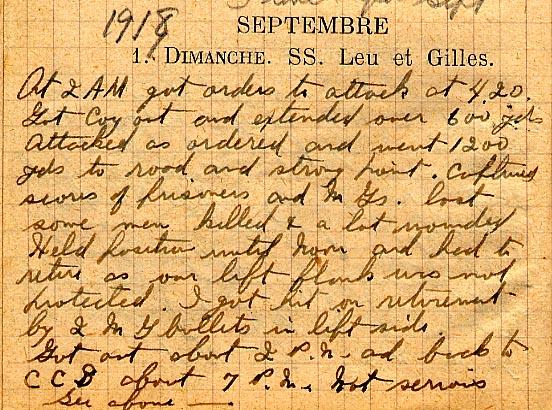 Sept
1918
SEPTEMBRE
1. DIMANCHE. SS. Leu et Gilles.
At 2 AM got orders to attack at 4.20.
Got Coy out and extended over 600 yds
Attacked as ordered and went 1200
yds to road and strong point. Captured
scores of prisoners and M Gs. lost
some men killed & a lot wounded
Held position until Noon and had to
retire as our left flank was not
protected. I got hit on retirement
by 2 M G bullets in left side.
Got out about 2 P.M. ad back to
C C S about 7 P.M. Not serious
See above —.